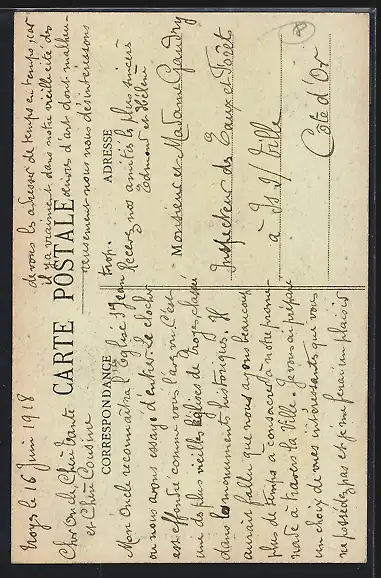 Troyes le 16 Juin 1918
Cher Oncle, Chère Tante
et Chère Cousine
CARTE POSTALE
CORRESPONDANCE
Mon Oncle reconnaîtra l'église St Jean
où nous avons essayé d'entrer le clocher
est effondré comme vous l'avez vu. C'est
une des plus vieilles églises de Troyes, classée
dans les monuments historiques. Il
aurait fallu que nous ayons beaucoup
plus de temps à consacrer à notre prome-
nade à travers la Ville. Je vous ai préparé
un choix de vues intéressantes que vous
ne possédez pas et je me ferai un plaisir
de vous les adresser de temps en temps, car
il y a vraiment dans notre vieille cité des
œuvres d'art dont malheu-
reusement nous nous désintéressons
trop.
Recevez nos amitiés les plus sincères
Edmond et Hélène
ADRESSE
Monsieur et Madame Gaudry
Inspecteur des Eaux et Forêts
à Is s/ Tille
Côte d'Or